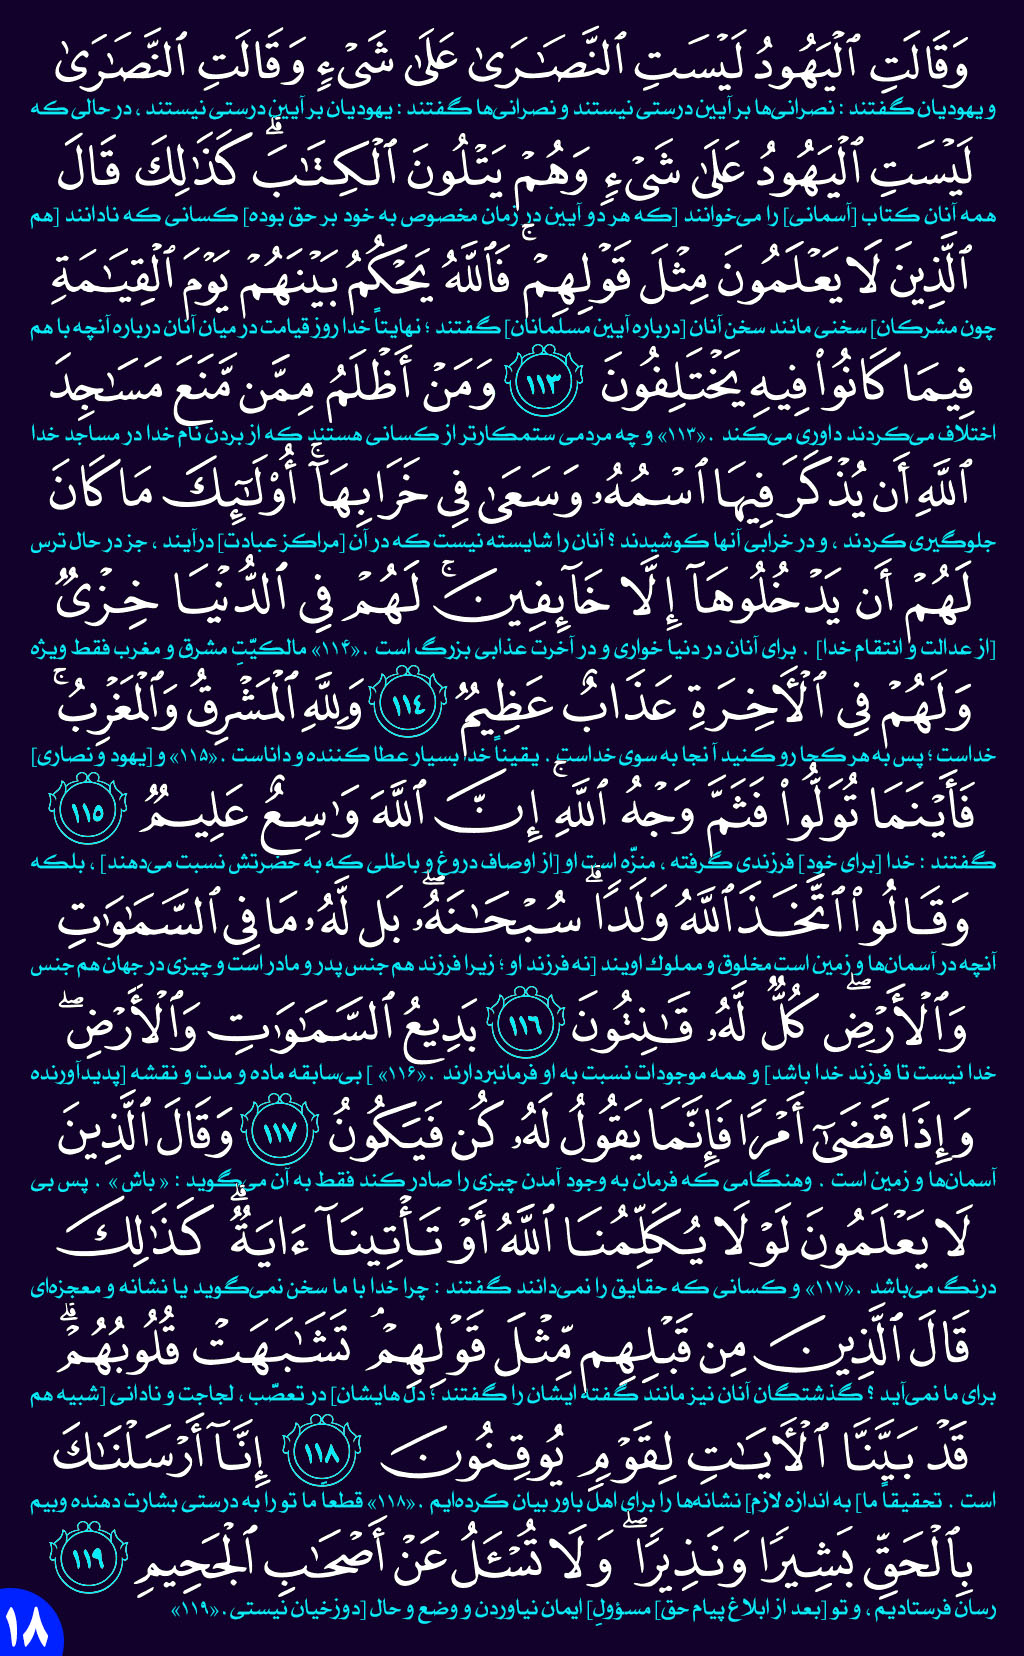 وَقَالَتِ ٱلْيَهُودُ لَيْسَتِ ٱلنَّصَـٰرَىٰ عَلَىٰ شَىْءٍ وَقَالَتِ ٱلنَّصَـٰرَىٰ
و یهودیان گفتند : نصرانی‌ها بر آیین درستی نیستند و نصرانی‌ها گفتند : یهودیان بر آیین درستی نیستند ، در حالی که
لَيْسَتِ ٱلْيَهُودُ عَلَىٰ شَىْءٍ وَهُمْ يَتْلُونَ ٱلْكِتَـٰبَ ۗ كَذَٰلِكَ قَالَ
همه آنان کتاب [آسمانی] را می‌خوانند [که هر دو آیین در زمان مخصوص به خود بر حق بوده] کسانی که نادانند [هم
ٱلَّذِينَ لَا يَعْلَمُونَ مِثْلَ قَوْلِهِمْ ۚ فَٱللَّهُ يَحْكُمُ بَيْنَهُمْ يَوْمَ ٱلْقِيَـٰمَةِ
چون مشرکان] سخنی مانند سخن آنان [درباره آیین مسلمانان] گفتند ؛ نهایتاً خدا روز قیامت در میان آنان درباره آنچه با هم
فِيمَا كَانُوا۟ فِيهِ يَخْتَلِفُونَ ١١٣ وَمَنْ أَظْلَمُ مِمَّن مَّنَعَ مَسَـٰجِدَ
اختلاف می‌کردند داوری می‌کند .«۱۱۳» و چه مردمی ستمکارتر از کسانی هستند که از بردن نام خدا در مساجد خدا
ٱللَّهِ أَن يُذْكَرَ فِيهَا ٱسْمُهُۥ وَسَعَىٰ فِى خَرَابِهَآ ۚ أُو۟لَـٰٓئِكَ مَا كَانَ
جلوگیری کردند ، و در خرابی آنها کوشیدند ؟ آنان را شایسته نیست که در آن [مراکز عبادت] درآیند ، جز در حال ترس
لَهُمْ أَن يَدْخُلُوهَآ إِلَّا خَآئِفِينَ ۚ لَهُمْ فِى ٱلدُّنْيَا خِزْىٌ
[از عدالت و انتقام خدا] . برای آنان در دنیا خواری و در آخرت عذابی بزرگ است .«۱۱۴» مالکیّتِ مشرق و مغرب فقط ویژه
وَلَهُمْ فِى ٱلْـَٔاخِرَةِ عَذَابٌ عَظِيمٌ ١١٤ وَلِلَّهِ ٱلْمَشْرِقُ وَٱلْمَغْرِبُ ۚ
خداست ؛ پس به هر کجا رو کنید آنجا به سوی خداست . یقیناً خدا بسیار عطا کننده و داناست .«۱۱۵» و [یهود و نصاری]
فَأَيْنَمَا تُوَلُّوا۟ فَثَمَّ وَجْهُ ٱللَّهِ ۚ إِنَّ ٱللَّهَ وَٰسِعٌ عَلِيمٌ ١١٥
گفتند : خدا [برای خود] فرزندی گرفته ، منزّه است او [از اوصاف دروغ و باطلی که به حضرتش نسبت می‌دهند] ، بلکه
وَقَالُوا۟ ٱتَّخَذَ ٱللَّهُ وَلَدًا ۗ سُبْحَـٰنَهُۥ ۖ بَل لَّهُۥ مَا فِى ٱلسَّمَـٰوَٰتِ
آنچه در آسمان‌ها و زمین است مخلوق و مملوك اویند [نه فرزند او ؛ زیرا فرزند هم جنس پدر و مادر است و چیزی در جهان هم جنس
وَٱلْأَرْضِ ۖ كُلٌّ لَّهُۥ قَـٰنِتُونَ ١١٦ بَدِيعُ ٱلسَّمَـٰوَٰتِ وَٱلْأَرْضِ ۖ
خدا نیست تا فرزند خدا باشد] و همه موجودات نسبت به او فرمانبردارند .«۱۱۶» ] بی‌سابقه ماده و مدت و نقشه [پدیدآورنده
وَإِذَا قَضَىٰٓ أَمْرًا فَإِنَّمَا يَقُولُ لَهُۥ كُن فَيَكُونُ ١١٧ وَقَالَ ٱلَّذِينَ
آسمان‌ها و زمین است . وهنگامی که فرمان به وجود آمدن چیزی را صادر کند فقط به آن می‌گوید : « باش » . پس بی
لَا يَعْلَمُونَ لَوْلَا يُكَلِّمُنَا ٱللَّهُ أَوْ تَأْتِينَآ ءَايَةٌ ۗ كَذَٰلِكَ
درنگ می‌باشد .«۱۱۷» و کسانی که حقایق را نمی‌دانند گفتند : چرا خدا با ما سخن نمی‌گوید یا نشانه و معجزه‌ای
قَالَ ٱلَّذِينَ مِن قَبْلِهِم مِّثْلَ قَوْلِهِمْ ۘ تَشَـٰبَهَتْ قُلُوبُهُمْ ۗ
برای ما نمی‌آید ؟ گذشتگان آنان نیز مانند گفته ایشان را گفتند ؛ دل هایشان] در تعصّب ، لجاجت و نادانی [شبیه هم
قَدْ بَيَّنَّا ٱلْـَٔايَـٰتِ لِقَوْمٍ يُوقِنُونَ ١١٨ إِنَّآ أَرْسَلْنَـٰكَ
است . تحقیقاً ما] به اندازه لازم] نشانه‌ها را برای اهل باور بیان کرده‌ایم .«۱۱۸» قطعاً ما تو را به درستی بشارت دهنده وبیم
بِٱلْحَقِّ بَشِيرًا وَنَذِيرًا ۖ وَلَا تُسْـَٔلُ عَنْ أَصْحَـٰبِ ٱلْجَحِيمِ ١١٩
رسان فرستادیم ، و تو [بعد از ابلاغ پیام حق] مسؤولِ] ایمان نیاوردن و وضع و حال [دوزخیان نیستی .«۱۱۹»
۱۸